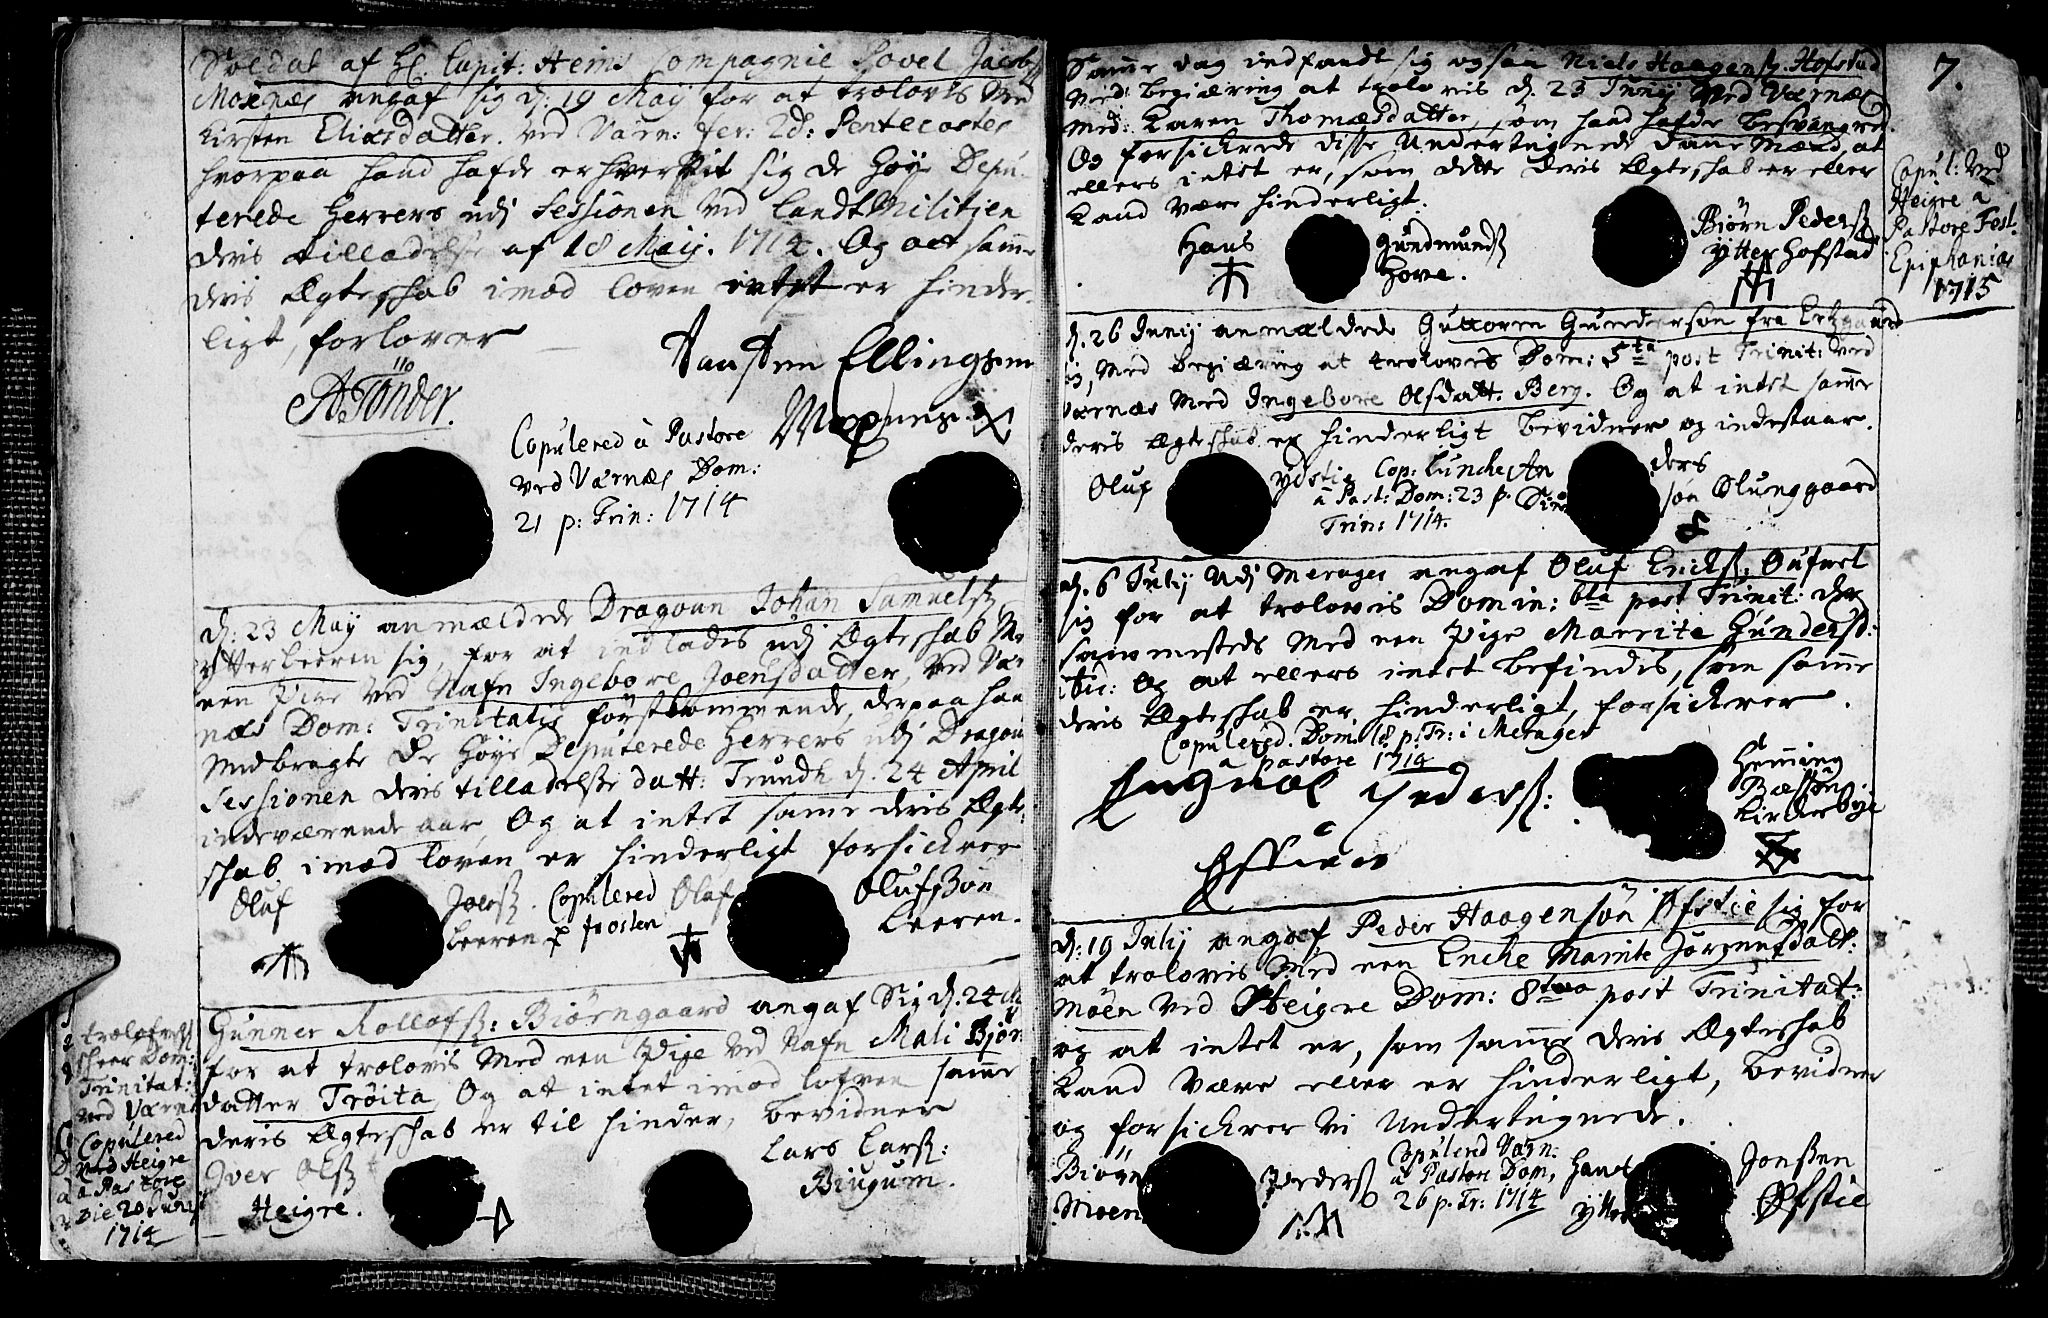 Soldat af H: Capit: Heins Compagnie Povel Jacobß
Moxnæs angaf sig d: 19 Maij for at trolovis med
Kirsten Eliæsdatter. ved Værn: fer: 2d: Pentecostes
hvorpaa hand hafde erhvervit sig de høye Depu-
terede Herrers udj Sessionen ved Landt Militien
deris tilladelse af 18 Maij. 1714. Og at samme
deris Ægteskab imod loven intet er hinder-
ligt, forlover
Taasten Ellingsen
A Tønder.
Moxnes
Copulered à Pastore
ved Værnæs Dom:
21 p: Trin: 1714
d: 23 Maij anmældede Dragoun Johan Samuelß
ytterleeren sig, for at indlades udj Ægteskab Me
een Pige ved Nafn Ingebore Joensdatter, ved Vær
næs Dom: Trinitatis førstkommende, derpaa han
medbragte de Høye Deputerede Herrers udj Dragou
Sessionen deris tilladelße datt: Trundh d. 24 April
indeværende aar, Og at intet samme deris Ægte-
skab imod loven er hinderligt forsickrer
Oluf Joenß Leeren
Copulered p frosten
Oluf Olufßøn Leeren.
Gunner Rollofß: Biørngaard angaf Sig d. 24 M
for at trolovis med een Pige ved Nafn Mali Bjør
datter Trøita Og at intet imod lofven samme
deris Ægteskab er til hinder, bevidner
Iver Olß Heigre.
Lars Larß: Biugum.
trolofveß
skeer Dom:
Trinitat:
ved Værn
Copulered
ved Heigre
a Pastore
Die 20 Junij
1714
7.
Samme dag indfandt sig ogsaa Niels Haagenß Hofstad
Med begiæring at trolovis d. 23 Junij ved Værnæs
med: Karen Thomæsdatter, som hand hafde besvangred.
Og forsickrede disse Undertegnede Danemænd, at
ellers intet er, som dette deris Ægteskab er eller
kand være hinderligt.
Hans Gundmundß Hove.
Biørn Pederß Ytter Hofstad
Copul: ved
Heigre a
Pastore Fest.
Epiphanias
1715
d. 26 Junij anmældede Guttorm Gunderson fra Ertzgaard
sig, Med begiæring at trolovis Dom: 5ta post Trinit: ved
Værnæs Med Ingebore Olsdatt: Berg. Og at intet samme
deris Ægteskab er hinderligt bevidner og indestaar.
Oluf Ydstie
Cop: Lunche
a Past: Dom: 23 p.
Trin: 1714.
Anders
søn Slunggaard
d. 6 Julij Udj Merager angaf Oluf Erichß. Oufvel
sig for at trolovis Domin: 6ta post Trinit: der
sammesteds Med een Pige Marrite Gundersd:
Og at ellers intet befindis, som samme
deris Ægteskab er hinderligt, forsickrer.
Copulered. Dom. 18 p. Tr: i Merager
a pastore 1714
Ingvol Pederß:
Henning
Bæsßen
Kirckebye
d: 19 Julij angaf Peder Haagensøn Øfstie sig for
at trolovis Med een Enche Marrite Jørgensdatt:
Moen ved Heigre Dom: 8tavo post Trinitat:
og at intet er, som samme deris Ægteskab
kand være eller er hinderligt, bevidner
og forsickrer vi Undertegnede.
Biørn Pederß Moen
Copulered Værn:
a Pastore Dom,
26 p. Tr: 1714
Hans Jonßen
Ytter Øfstie